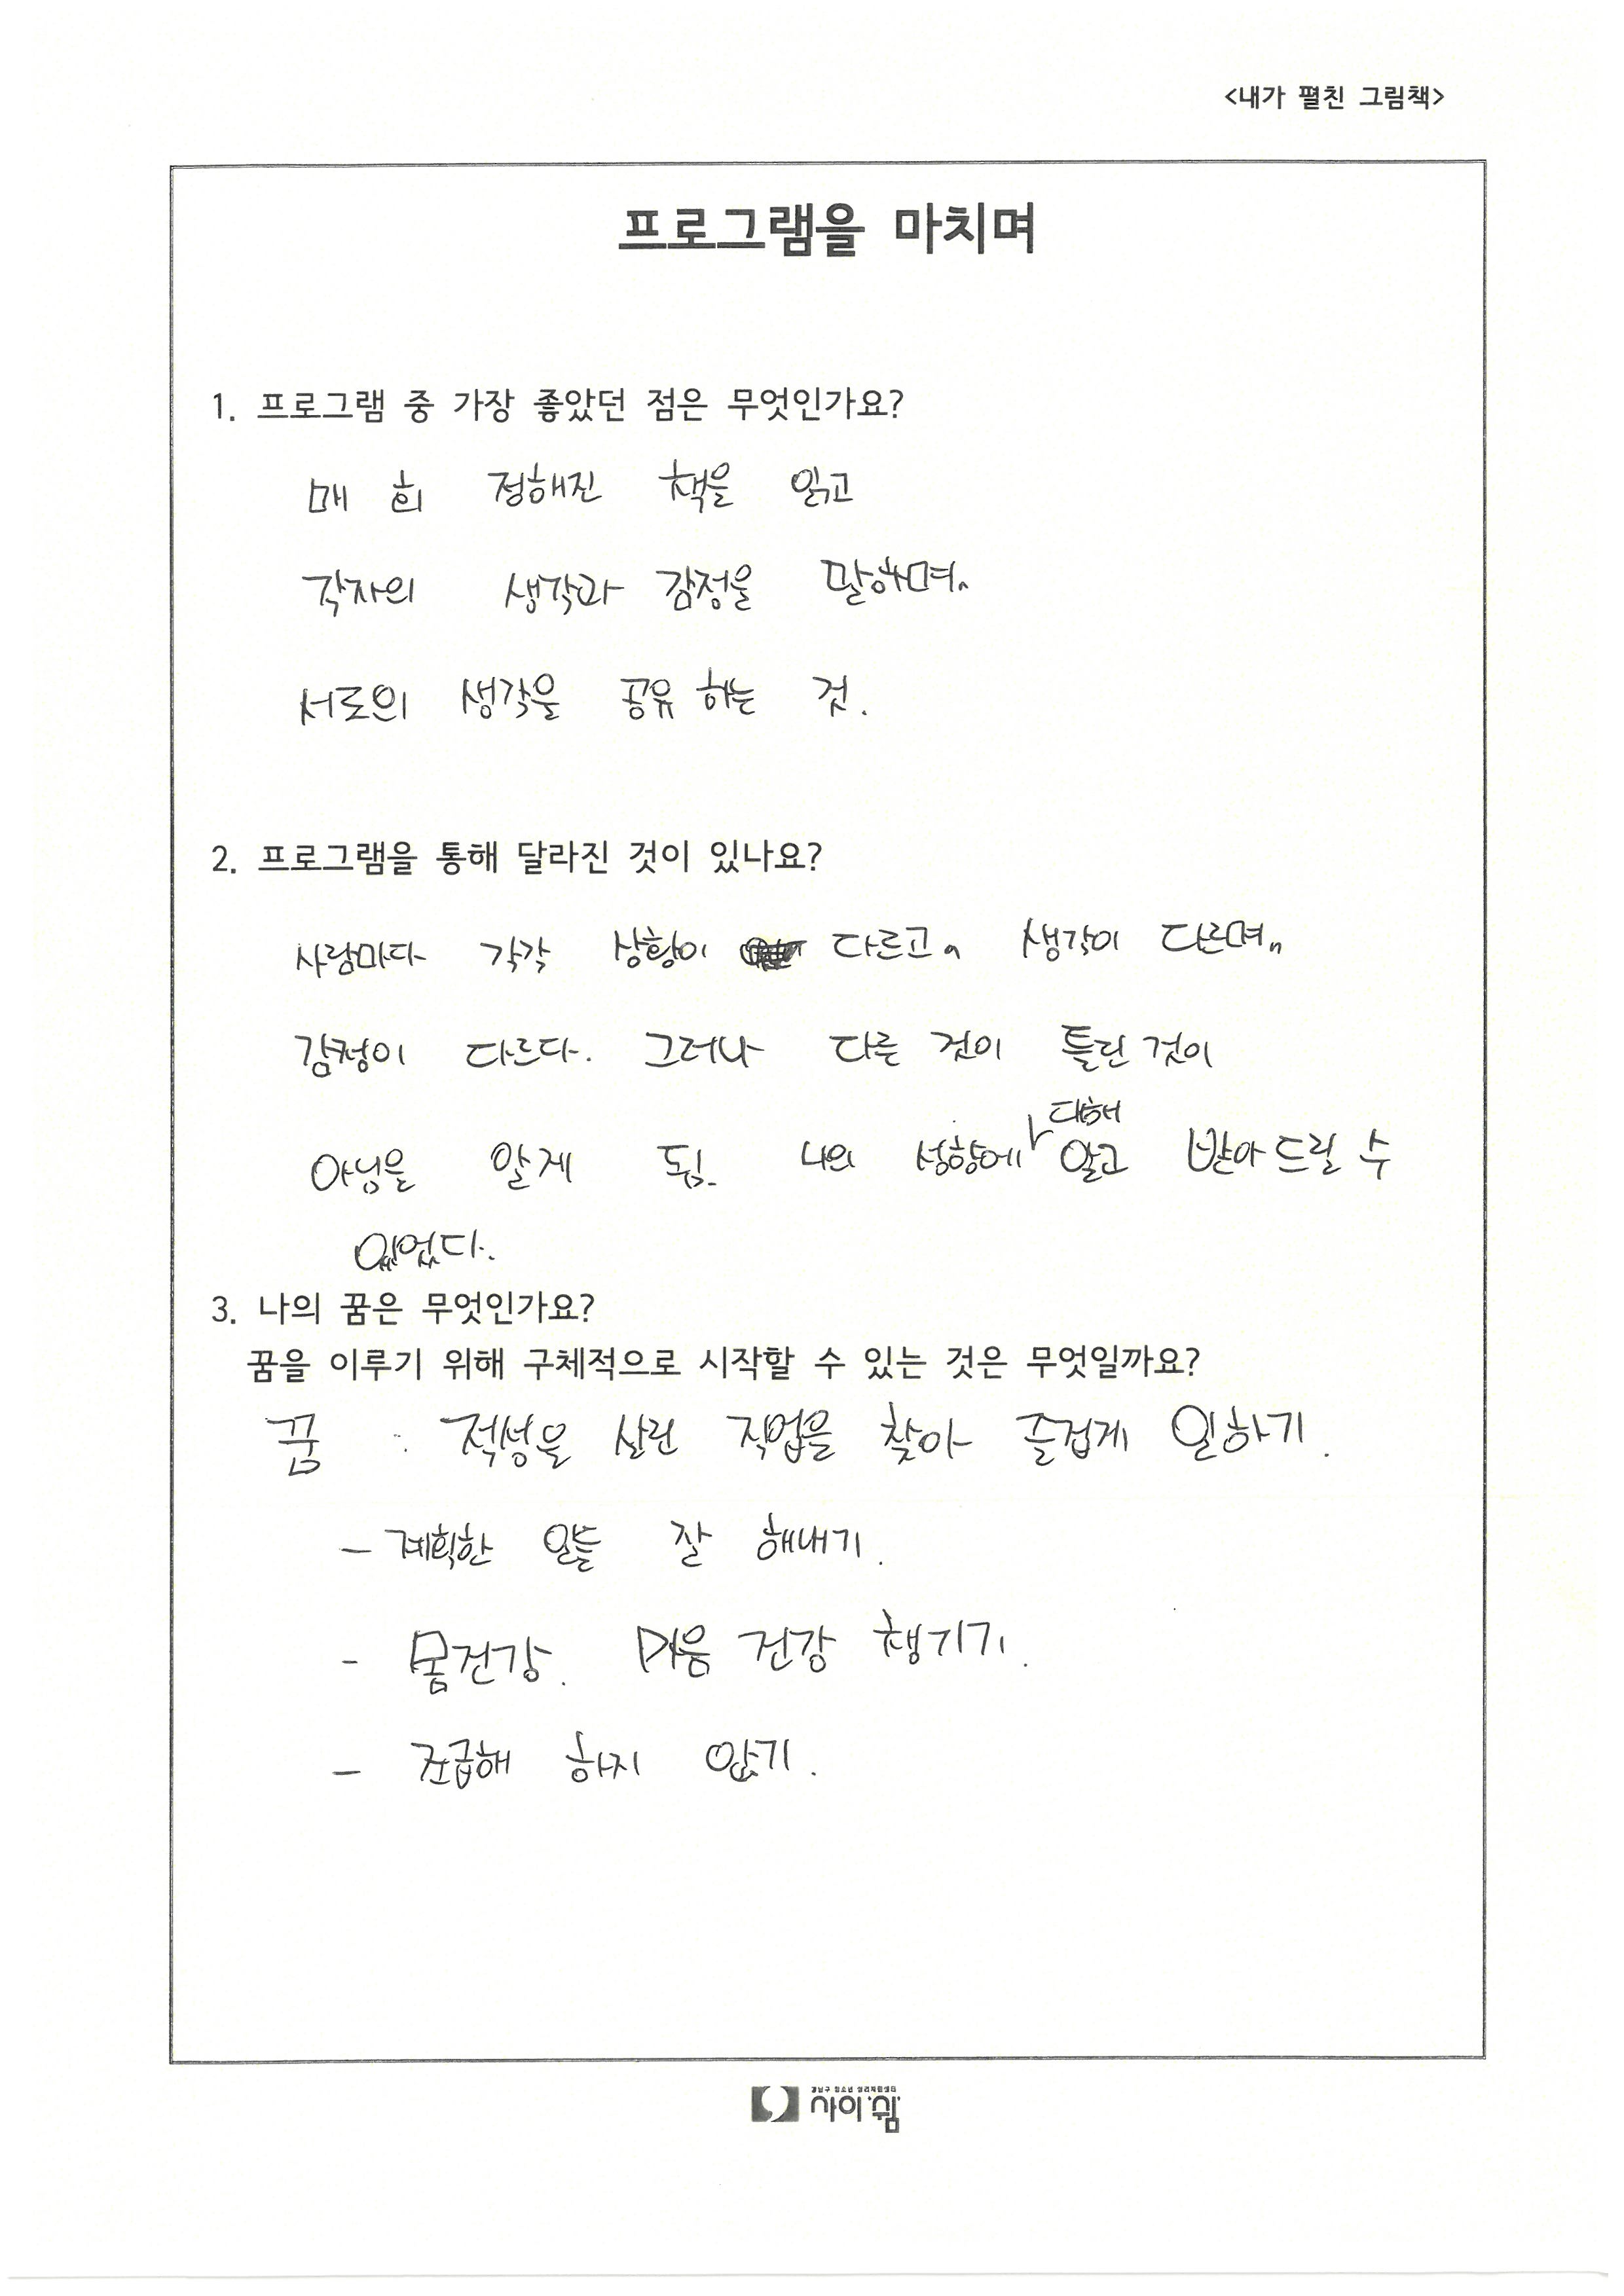 <내가 펼친 그림책>
프로그램을 마치며
1. 프로그램 중 가장 좋았던 점은 무엇인가요?
매 회 정해진 책을 읽고
각자의 생각과 감정을 말하며,
서로의 생각을 공유 하는 것.
2. 프로그램을 통해 달라진 것이 있나요?
사람마다 각각 상황이 다르고, 생각이 다르며,
감정이 다르다. 그러나 다른 것이 틀린 것이
아님을 알게 됨. 나의 성향에 대해 알고 받아드릴 수
있었다.
3. 나의 꿈은 무엇인가요?
꿈을 이루기 위해 구체적으로 시작할 수 있는 것은 무엇일까요?
꿈 : 적성을 살린 직업을 찾아 즐겁게 일하기.
- 계획한 일들 잘 해내기.
- 몸건강. 마음 건강 챙기기.
- 조급해 하지 않기.
강남구 청소년 심리지원센터
사이쉼